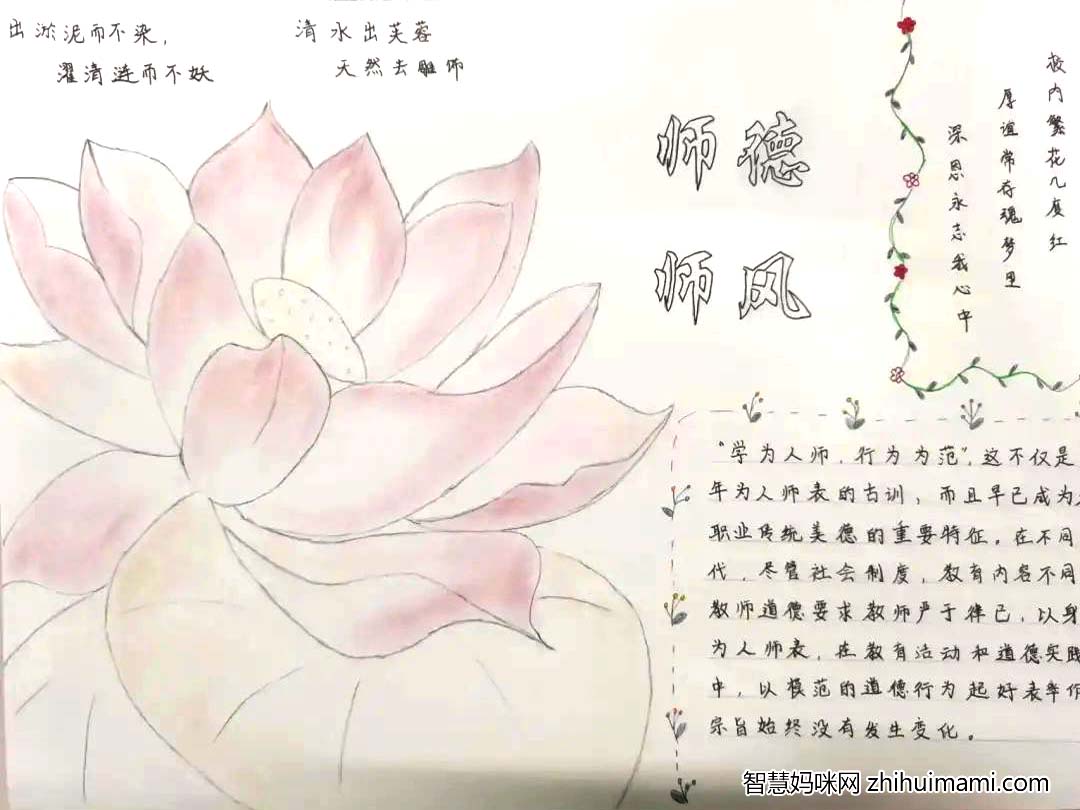 出淤泥而不染,
濯清涟而不妖
清水出芙蓉
天然去雕饰
师德
师风
校内繁花几度红
厚谊常存魂梦里
深恩永志我心中
“学为人师，行为为范”，这不仅是
年为人师表的古训，而且早已成为
职业传统美德的重要特征。在不同
代，尽管社会制度，教育内容不同
教师道德要求教师严于律己，以身
为人师表，在教育活动和道德实践
中，以模范的道德行为起好表率作
宗旨始终没有发生变化。
智慧妈咪网 zhihuimami.com